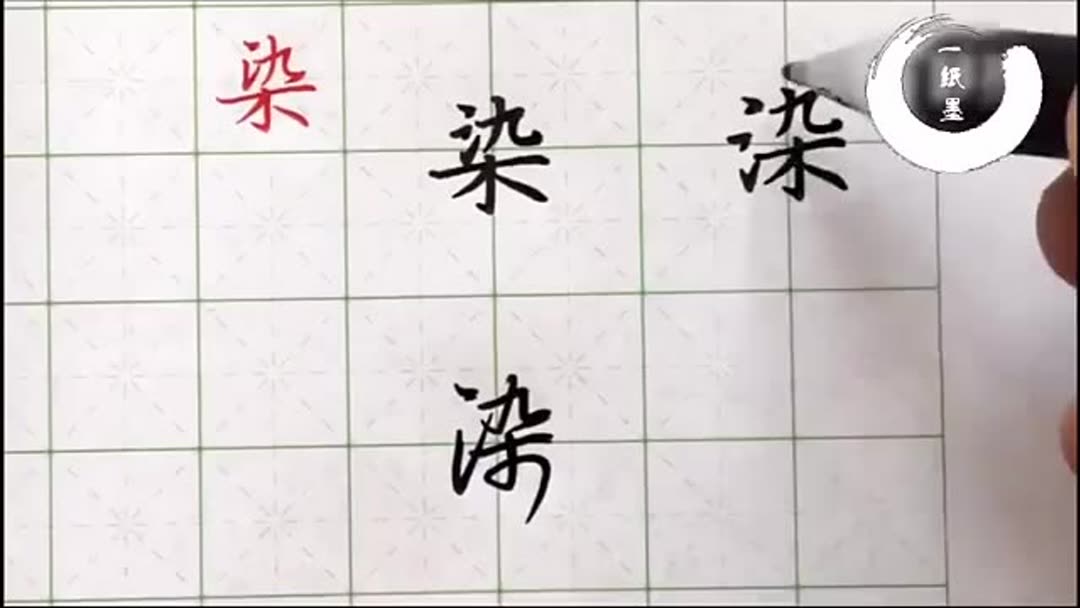 染
染
染
染
一纸墨